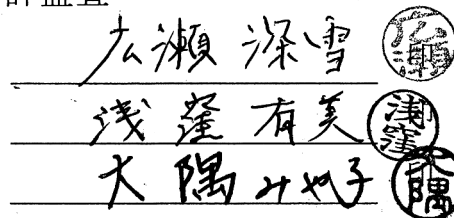 計監査
広瀬 深雪 広瀬
浅窪 有美 浅窪
大隅 みや子 大隅